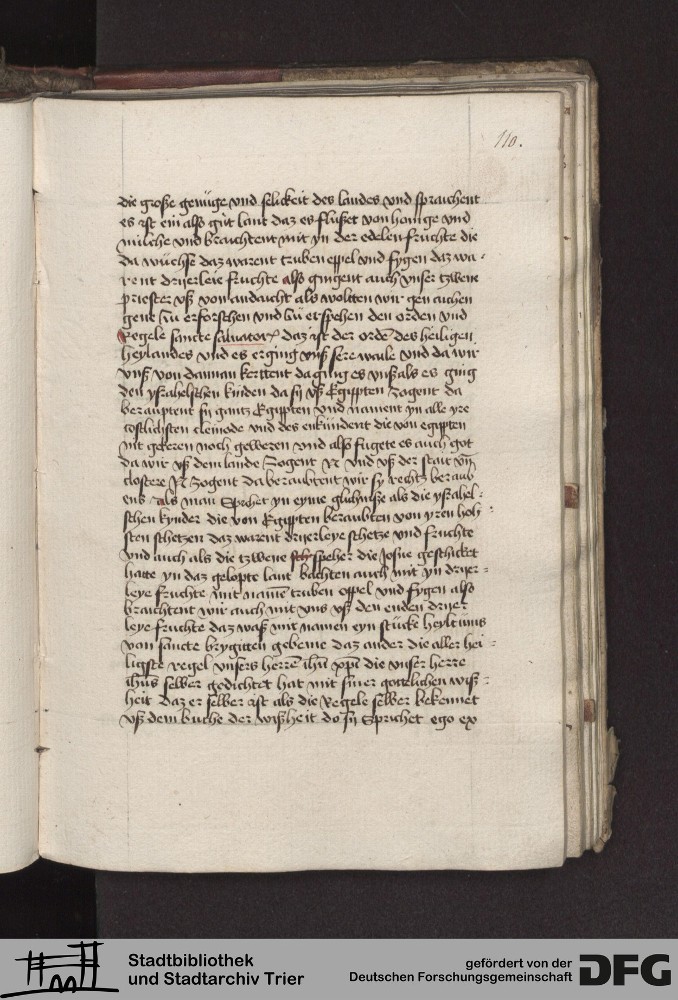 110.
die große genüge vnd selickeit des landes vnd sprauchent
es ist ein also gut lant daz es flußet von honige vnd
milche vnd brauchtent mit yn der edelen fruchte die
da wüchse daz warent truben eppel vnd fygen daz wa-
rent dryerleie fruchte also gingent auch vnser tzwene
priester vß von andacht als woltten wir gen auchen
gent zu erforschen vnd zu erspehen den orden vnd
Regele sancte saluatorꝭ daz ist der ordē des heiligen
heylandes vnd es erging vnß sere waile vnd da wir
vnß von dannan kerttent da ging es vnß als es ging
den ysrahelschen kinden da sy vß Egippten zogent da
beraupttent sy gantz Egippten vnd nament yn alle yre
costlichsten cleinode vnd des enkundent die von egippten
nit gekeren noch geweren vnd also fugete es auch got
da wir vß dem lande zogent ꝛc vnd vß der stait vn̄
clostere ꝛc zogent da beraubtent wir sy rechtz beraub
ens als man sprichet yn eyme glichniße als die ysrahel-
schen kynder die von Egippten beraubten von yren hoh
sten schetzen daz warent dryerleye schetze vnd fruchte
vnd auch als die tzwene speher die Josue geschicket
hatte yn daz gelopte lant brachten auch mit yn dryer-
leye fruchte mit namē truben eppel vnd fygen also
brauchtent wir auch mit vns vß den enden dryer
leye fruchte daz waß mit namen eyn stücke heyltums
von sancte brygitten gebeine daz ander die aller hei-
ligste regel vnsers herrē ihū xp̄i die vnser herre
ihūs selber gedichtet hat mit siner gottelichen wiß-
heit daz er selber ist als die Regele selber bekennet
vß dem buche der wißheit do sy sprichet ego ex
Stadtbibliothek
und Stadtarchiv Trier
gefördert von der
Deutschen Forschungsgemeinschaft
DFG